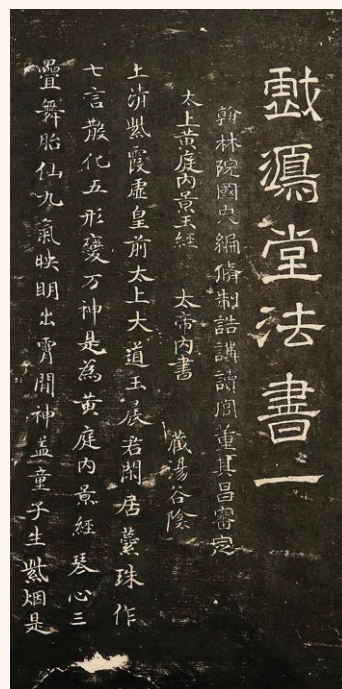 戲鴻堂法書一
翰林院國史編脩制誥講讀官董其昌審定
太上黃庭內景玉經 太帝內書 藏湯谷陰
上清紫霞虛皇前太上大道玉晨君閑居蘂珠作
七言散化五形變万神是為黃庭內景經 琴心三
疊舞胎仙九氣映明出霄間神盖童子生紫烟是